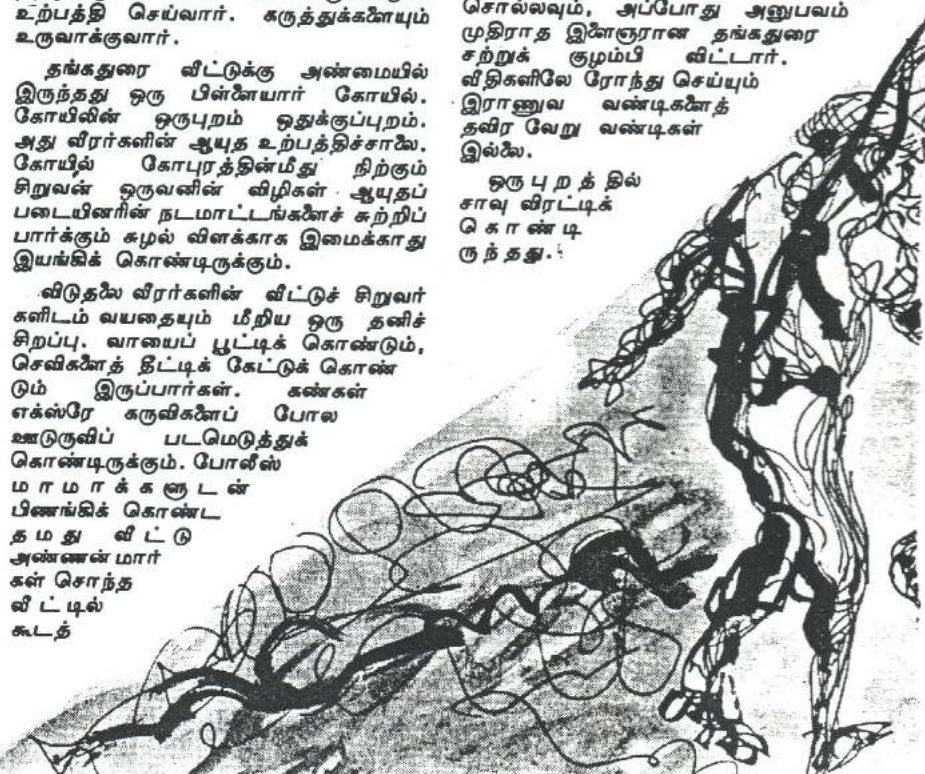 உற்பத்தி செய்வார். கருத்துக்களையும்
உருவாக்குவார்.
தங்கதுரை வீட்டுக்கு அண்மையில்
இருந்தது ஒரு பிள்ளையார் கோயில்.
கோயிலின் ஒருபுறம் ஒதுக்குப்புறம்.
அது வீரர்களின் ஆயுத உற்பத்திச்சாலை.
கோயில் கோபுரத்தின்மீது நிற்கும்
சிறுவன் ஒருவனின் விழிகள் ஆயுதப்
படையினரின் நடமாட்டங்களைச் சுற்றிப்
பார்க்கும் சுழல் விளக்காக இமைக்காது
இயங்கிக் கொண்டிருக்கும்.
விடுதலை வீரர்களின் வீட்டுச் சிறுவர்
களிடம் வயதையும் மீறிய ஒரு தனிச்
சிறப்பு. வாயைப் பூட்டிக் கொண்டும்,
செவிகளைத் தீட்டிக் கேட்டுக் கொண்
டும் இருப்பார்கள். கண்கள்
எக்ஸ்ரே கருவிகளைப் போல
ஊடுருவிப் படமெடுத்துக்
கொண்டிருக்கும். போலீஸ்
மாமாக்களுடன்
பிணங்கிக் கொண்ட
தமது வீட்டு
அண்ணன்மார்
கள் சொந்த
வீட்டில்
கூடத்
சொல்லவும், அப்போது அனுபவம்
முதிராத இளைஞரான தங்கதுரை
சற்றுக் குழம்பி விட்டார்.
வீதிகளிலே ரோந்து செய்யும்
இராணுவ வண்டிகளைத்
தவிர வேறு வண்டிகள்
இல்லை.
ஒருபுறத்தில்
சாவு விரட்டிக்
கொண்டி
ருந்தது.